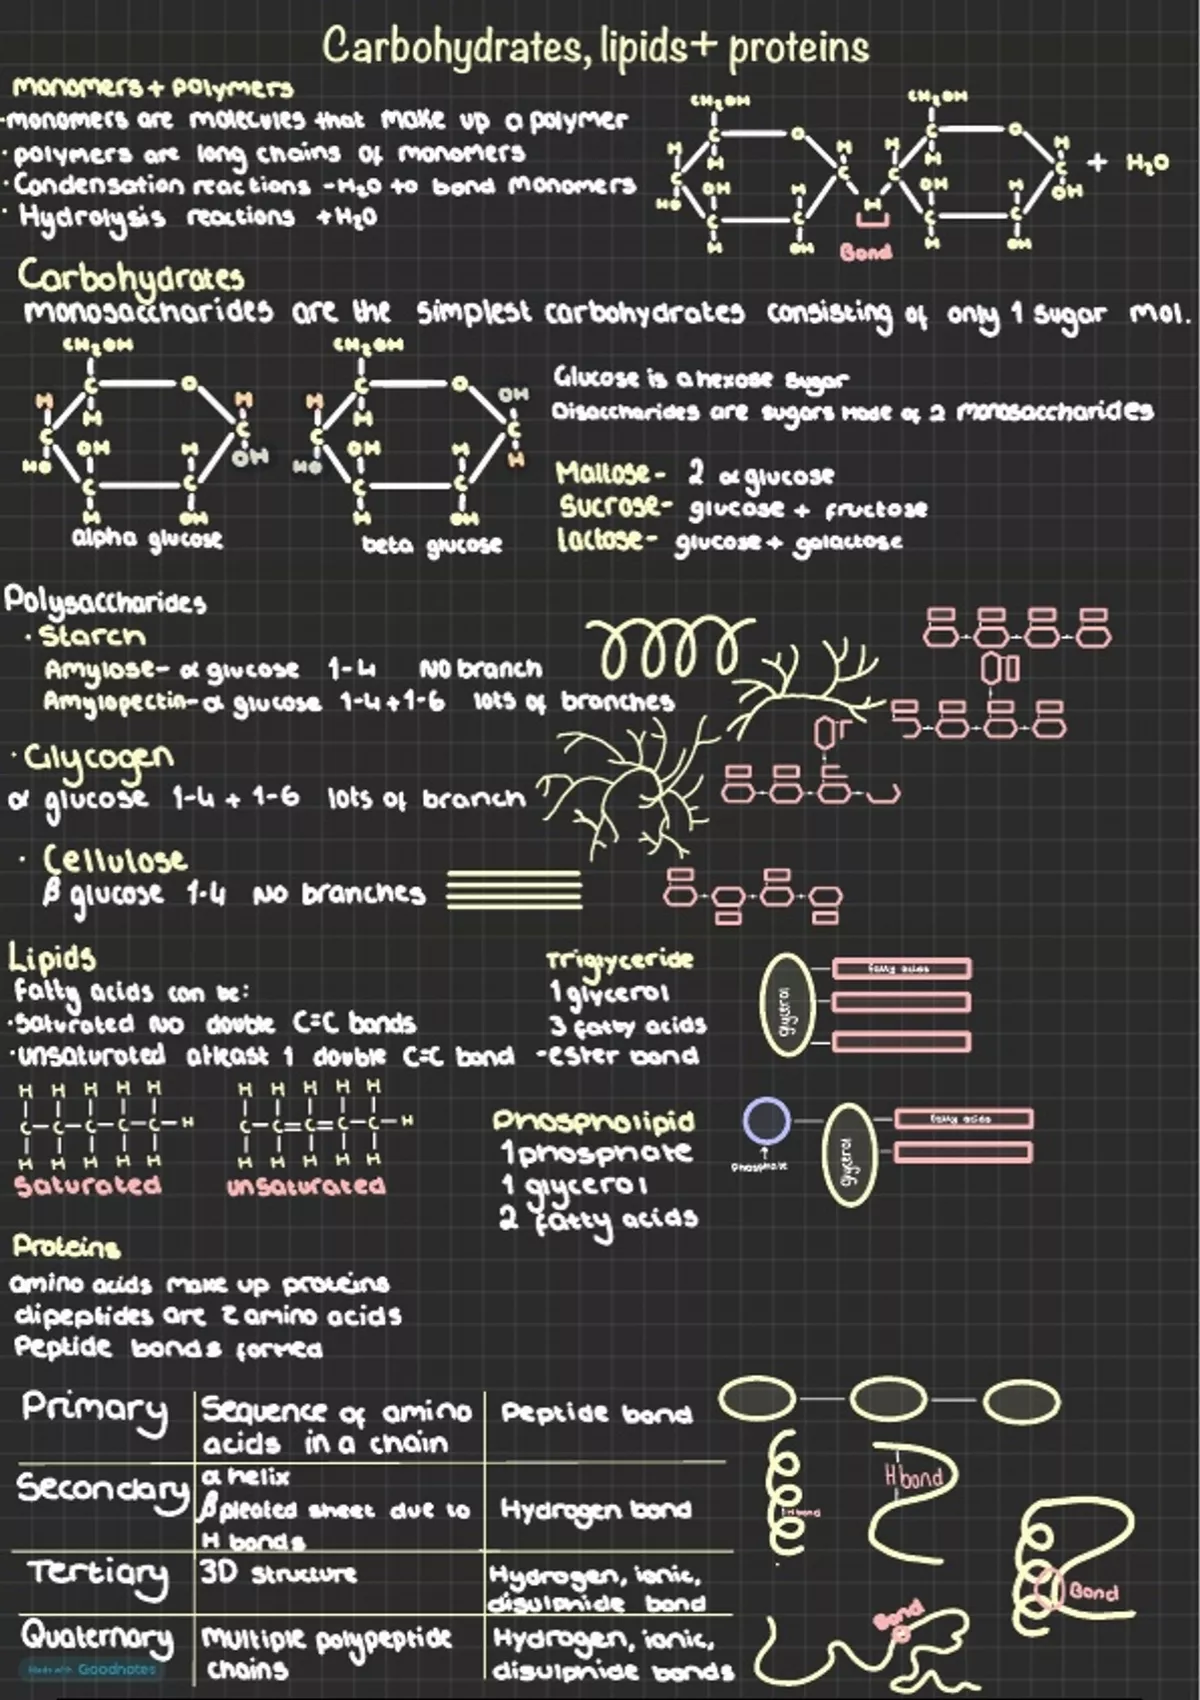 Carbohydrates, lipids+ proteins
monomers + polymers
·monomers are molecules that make up a polymer
· polymers are long chains of monomers
· Condensation reactions -H₂O to bond monomers
· Hydrolysis reactions +H₂O
CH₂OH CH₂OH
C O C O
H H H H H H
C C C C + H₂O
H OH H H OH H OH
HO C C H C C
H OH Bond H OH
Carbohydrates
monosaccharides are the simplest carbohydrates consisting of only 1 sugar mol.
CH₂OH CH₂OH
C O C O OH
H H H H H
C C C C
HO OH H OH HO OH H H
C C C C
H OH H OH
alpha glucose beta glucose
Glucose is a hexose sugar
Disaccharides are sugars made of 2 monosaccharides
Maltose- 2 α glucose
Sucrose- glucose + fructose
Lactose- glucose + galactose
Polysaccharides
· Starch
Amylose- α glucose 1-4 NO branch
Amylopectin- α glucose 1-4 + 1-6 lots of branches
· Glycogen
α glucose 1-4 + 1-6 lots of branch
· Cellulose
β glucose 1-4 NO branches
Lipids
Fatty acids can be:
·saturated NO double C=C bonds
·unsaturated atleast 1 double C=C bond
H H H H H
C-C-C-C-C-H
H H H H H
saturated
H H H H H
C-C=C=C-C-H
H H H H H
unsaturated
Triglyceride
1 glycerol
3 fatty acids
-ester bond
glycerol
fatty acids
Phospholipid
1 phosphate
1 glycerol
2 fatty acids
phosphate
glycerol
fatty acids
Proteins
amino acids make up proteins
dipeptides are 2 amino acids
Peptide bonds formed
Primary Sequence of amino acids in a chain Peptide bond
Secondary α helix
β pleated sheet due to H bonds Hydrogen bond
Tertiary 3D structure Hydrogen, ionic, disulphide bond
Quaternary multiple polypeptide chains Hydrogen, ionic, disulphide bonds
H bond
H bond
Bond
Bond
Made with Goodnotes